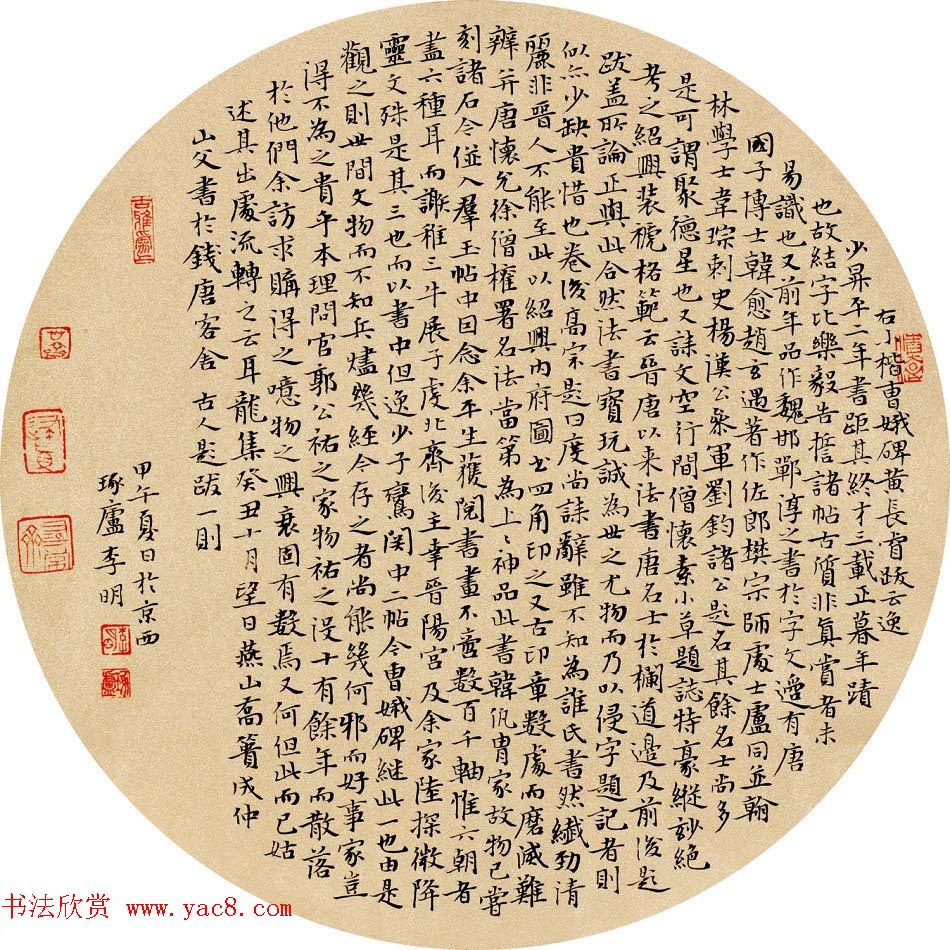 右小楷曹娥碑黄長睿跋云逸
少昇平二年書距其終才三載正暮年蹟
也故結字比樂毅告誓諸帖古質非真賞者未
易識也又前年品作魏邯鄲淳之書於字文邊有唐
國子博士韓愈趙玄遇著作佐郎樊宗師處士盧同並翰
林學士韋琮刺史楊漢公參軍劉鈞諸公題名其餘名士尚多
是可謂聚德星也又誄文空行間僧懷素小草題誌特豪縱妙絕
考之紹興裝褫格範云晉唐以来法書唐名士於欄道邊及前後題
跋盖所論正與此合然法書寶玩誠為世之尤物而乃以侵字題記者則
似亦少缺貴惜也卷後高宗題曰度尚誄辭雖不知為誰氏書然纖勁清
麗非晉人不能至此以紹興内府圖书四角印之又古印章數處而磨滅難
辨并唐懷充徐僧權署名法當第為上上神品此書韓侂胄家故物已嘗
刻諸石令㑹入羣玉帖中因念余平生獲閱書畫不啻數百千軸惟六朝者
盖六種耳而謝稚三牛展子虔北齊後主幸晉陽宮及余家陸探微降
靈文殊是其三也而以書中但逸少子鸞関中二帖令曹娥碑継此一也由是
觀之則世間文物而不知兵燼幾経今存之者尚能幾何邪而好事家豈
得不為之貴乎本理問官郭公祐之家物祐之没十有餘年而散落
於他們余訪求購得之噫物之興衰固有数焉又何但此而已姑
述其出處流轉之云耳龍集癸丑十月望日燕山喬簣成仲
山父書於錢唐客舍 古人題跋一則
甲午夏日於京西
琢廬李明
书法欣赏 www.yac8.com